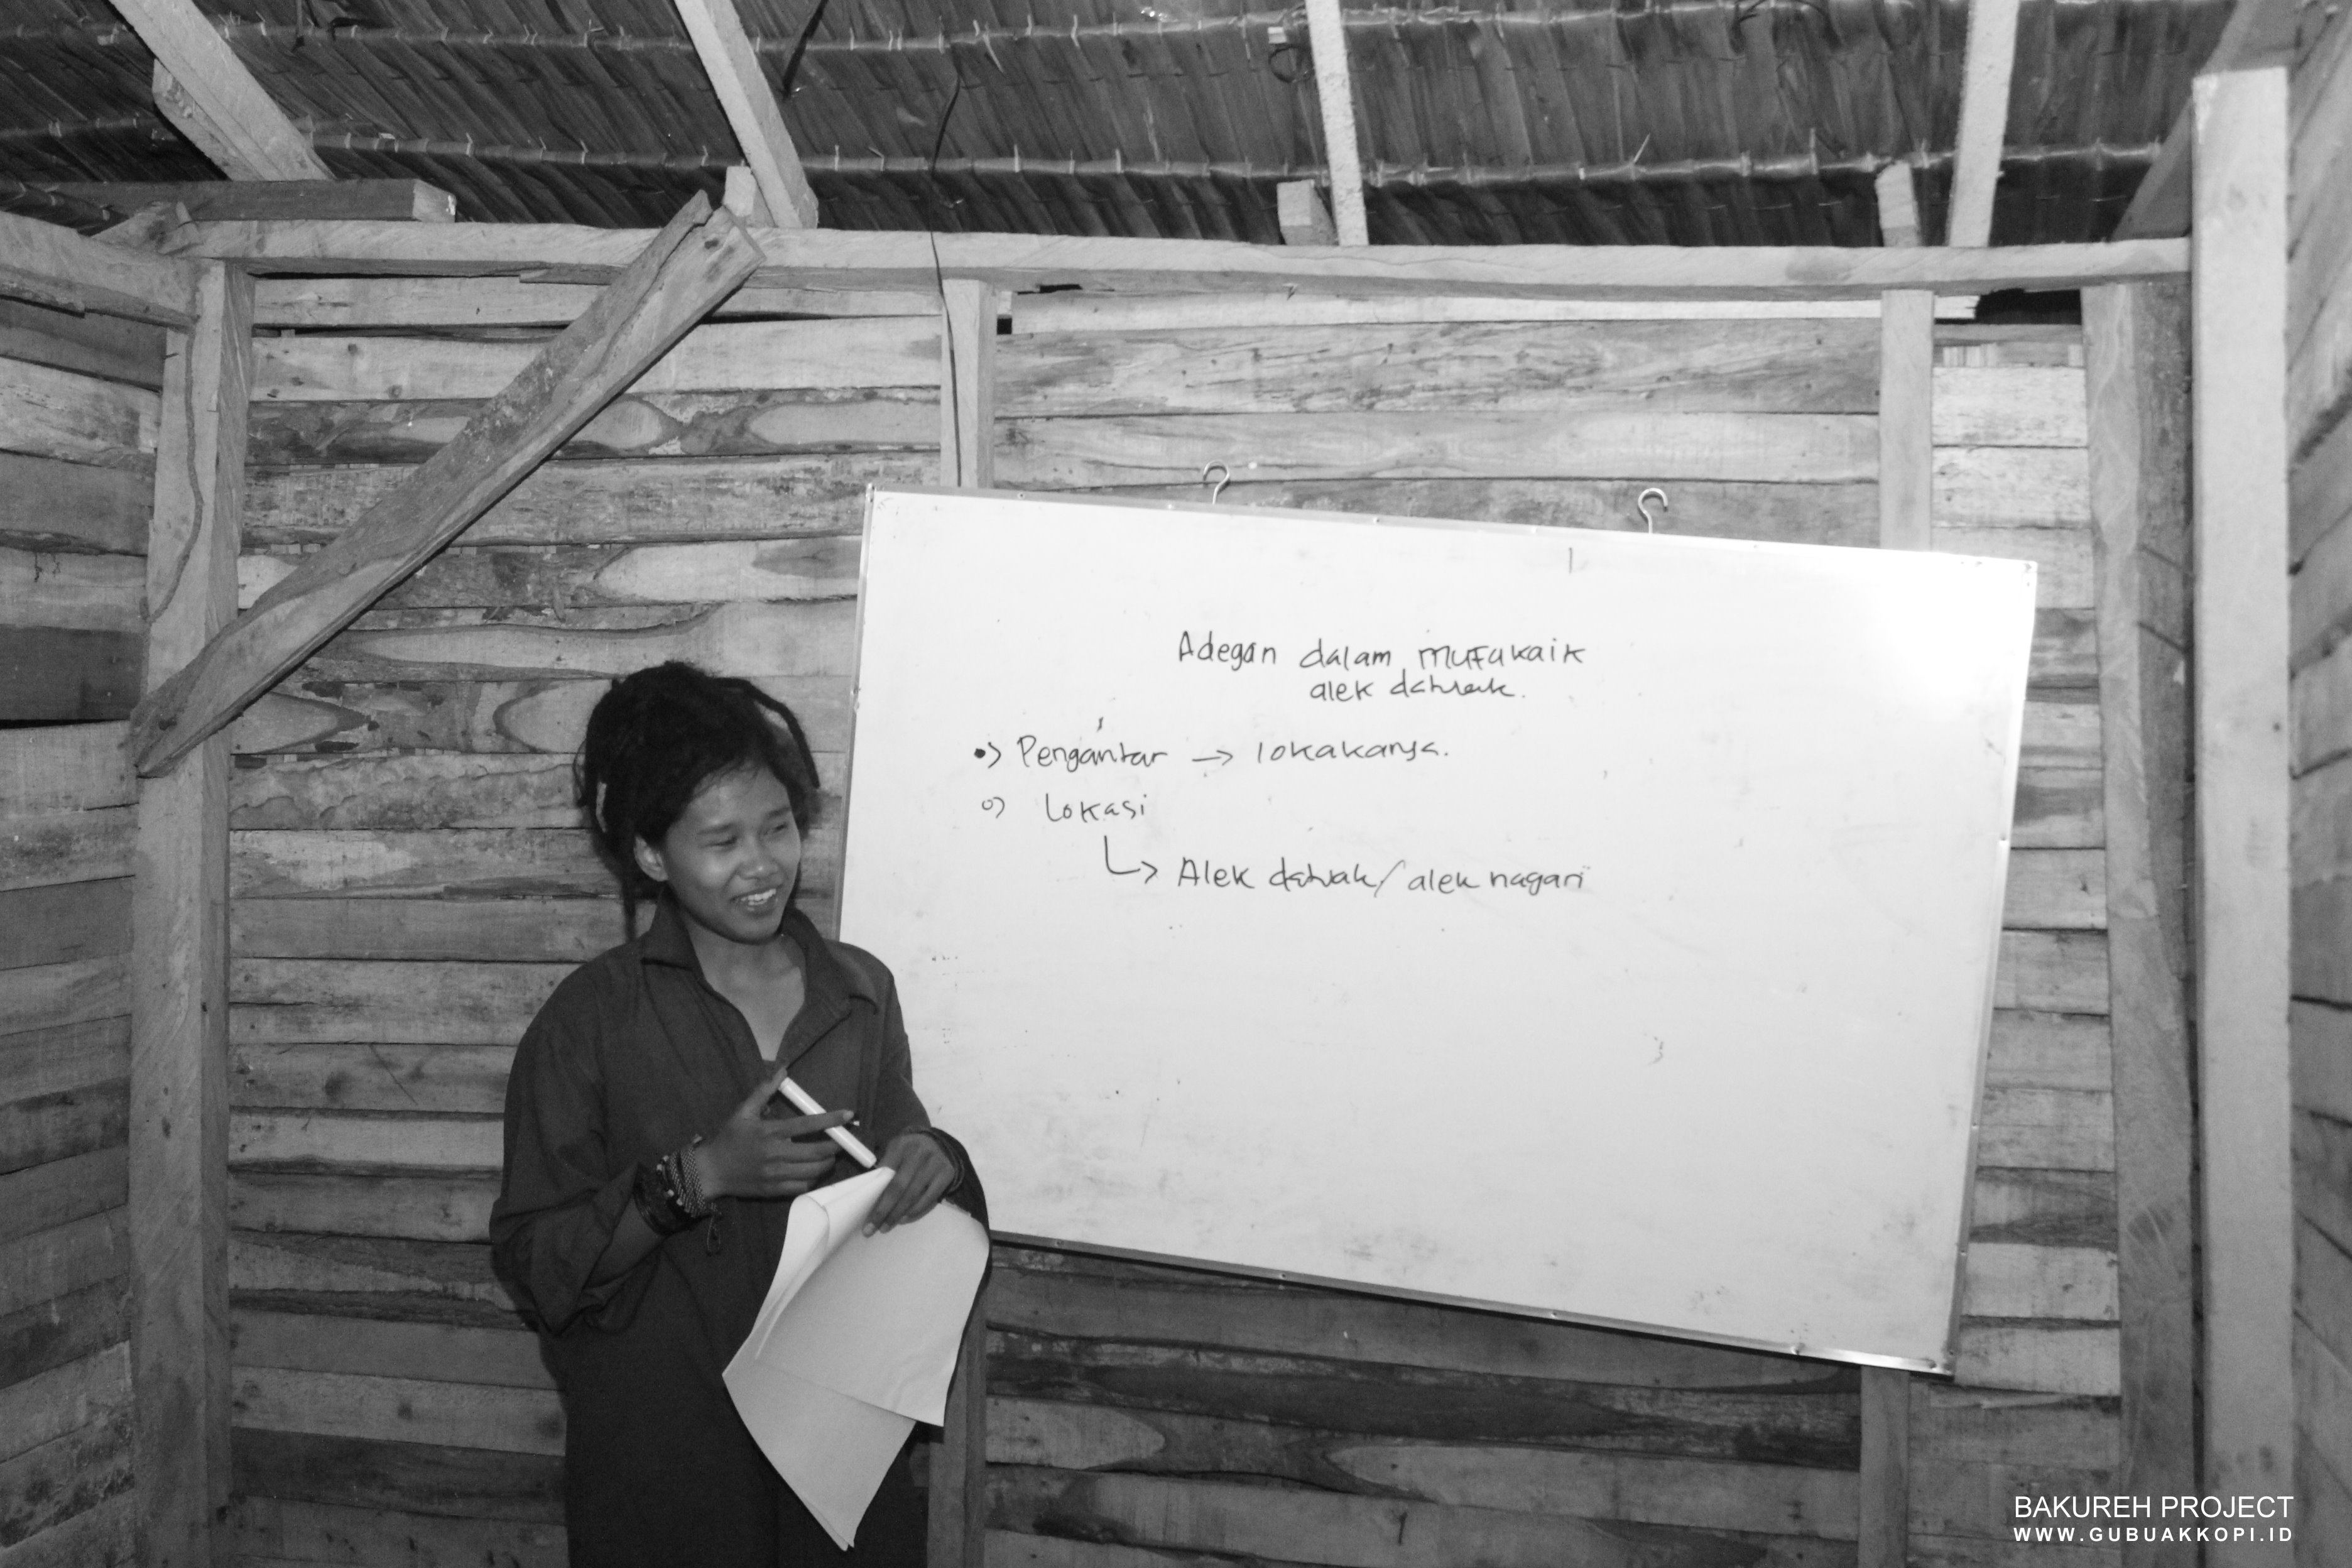 Adegan dalam mufakaik
alek
•) Pengantar → lokakarya.
o) Lokasi
↳ Alek / alek nagari
BAKUREH PROJECT
WWW.GUBUAKKOPI.ID